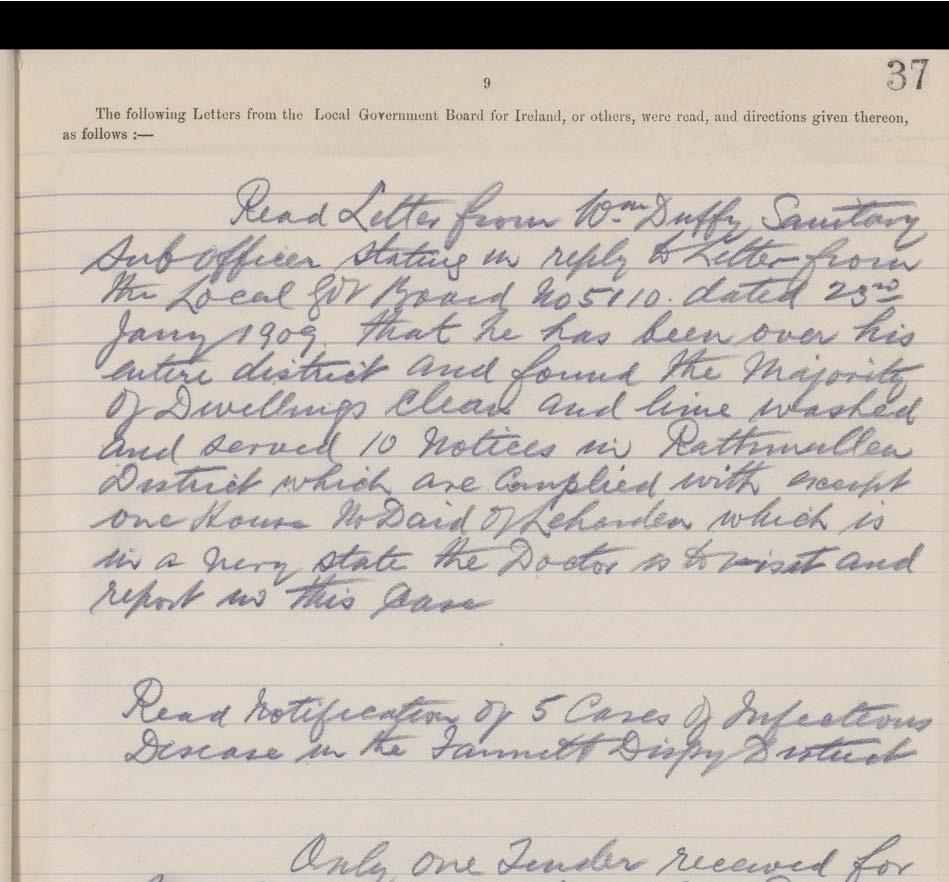 37
9
The following Letters from the Local Government Board for Ireland, or others, were read, and directions given thereon,
as follows :—
Read Letter from Wm Duffy Sanitary
Sub Officer stating in reply to Letter from
the Local Gov Board No 5110. dated 23rd
Jany 1909. that he has been over his
entire district and found the Majority
of Dwellings Clean and lime washed
and served 10 Notices in Rathmullen
District which are Complied with except
one House McDaid of which is
in a very state the Doctor is to visit and
report in this Case
Read Notification of 5 Cases of Infectious
Disease in the Fannett Dispy District
Only one Tender received for